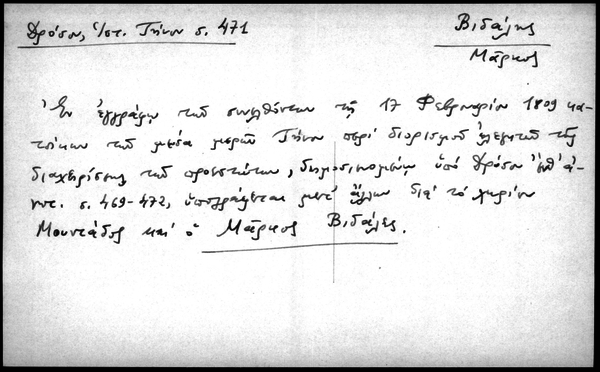 Δρόσου, Ἱστ. Τήνου σ. 471
Βιδάλης
Μάρκος
Ἐν ἐγγράφῳ τῶν συνελθόντων τῇ 17 Φεβρουαρίου 1809 κα-
τοίκων τῶν μέσα μερῶν Τήνου περί διορισμοῦ ἐλεγκτῶν τῆς
διαχειρίσεως τῶν προεστώτων, δημοσιευομένῳ ὑπό Δρόσου ἔνθ' ἀ-
νωτ. σ. 469-472, ὑπογράφεται μετ' ἄλλων διά τό χωρίον
Μουντάδος καί ὁ Μάρκος Βιδάλες.